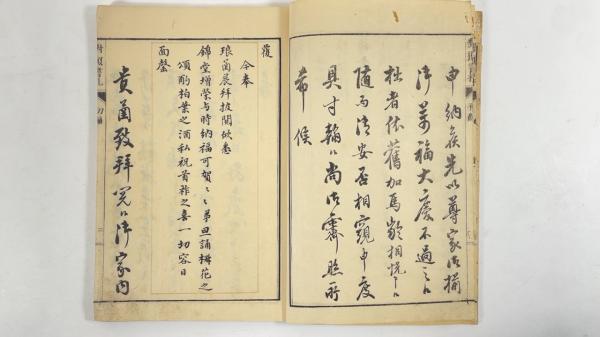 申納候先以尊家御揃
御萬福大慶不過之候
拙者依舊加馬齢相悦申候
随而御安否相窺申度
具寸翰候尚御霽照所
希候
覆
今奉
琅函展拜披閲欣悉
錦堂增榮与時納福可賀〻〻弟旦誦梅花之
頌酌柏葉之酒私祝首祚之喜一切容日
面罄
貴函致拜見候御家内